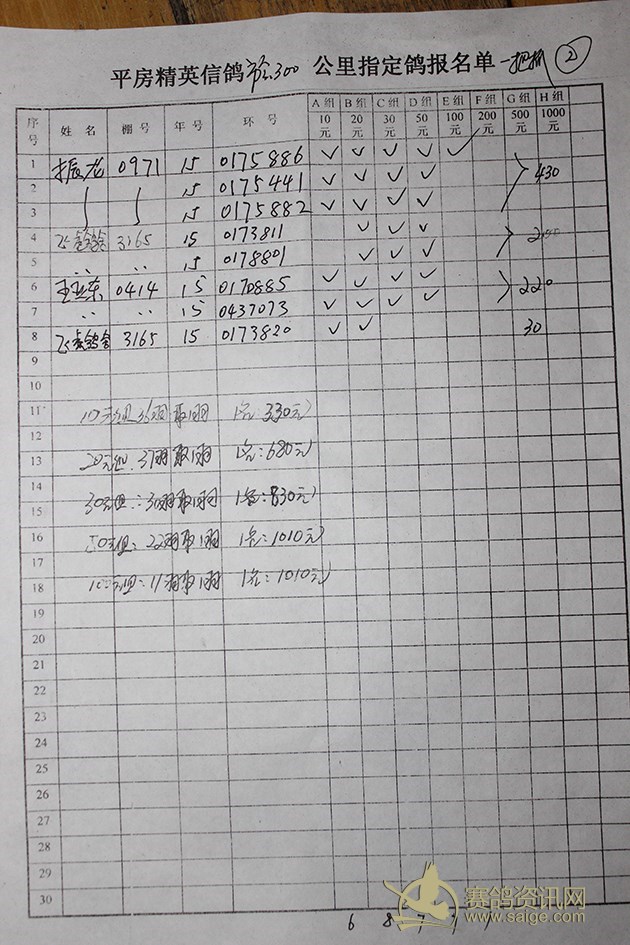 平房精英信鸽 300 公里指定鸽报名单 一把抓 ②
序号 姓名 棚号 年号 环号 A组10元 B组20元 C组30元 D组50元 E组100元 F组200元 G组500元 H组1000元
1 振龙 0971 15 0175886 ✓ ✓ ✓ ✓ ✓
2 15 0175441 ✓ ✓ ✓ ✓ 430
3 15 0175882 ✓ ✓ ✓ ✓
4 3165 15 0173811 ✓ ✓ ✓
5 〃 〃 15 0178801 ✓ ✓ ✓
6 0414 15 0170885 ✓ ✓ ✓ ✓ 220
7 〃 〃 15 0437073 ✓ ✓ ✓ ✓
8 3165 15 0173820 ✓ ✓ 30
9
10
11 10元组:36羽取1羽 1名:330元
12
13 20元组:37羽取1羽 1名:680元
14
15 30元组:30羽取1羽 1名:830元
16 50元组:22羽取1羽 1名:1010元
17
18 100元组:11羽取1羽 1名:1010元
19
20
21
22
23
24
25
26
27
28
29
30
6 8 7
赛鸽资讯网
www.saige.com